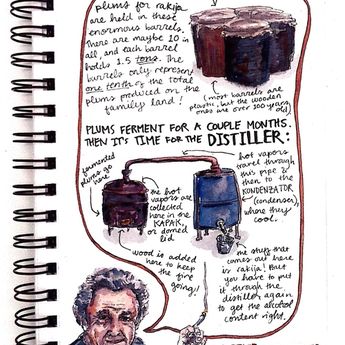 plums for rakija
are held in these
enormous barrels.
There are maybe 10 in
all, and each barrel
holds 1.5 tons. The
barrels only represent
one tenth of the total
plums produced on the
family land!
(most barrels are
plastic, but the wooden
ones are over 100 years
old)
PLUMS FERMENT FOR A COUPLE MONTHS.
THEN IT'S TIME FOR THE DISTILLER:
fermented
plums go
here
the hot
vapors are
collected
here in the
KAPAK,
or domed
lid
hot vapors
travel through
this pipe &
then to the
KONDENZATOR
(condenser),
where they
cool.
wood is added
here to keep
the fire
going!
the stuff that
comes out here
is rakija! But
you have to put
it through the
distiller again
to get the alcohol
content right.